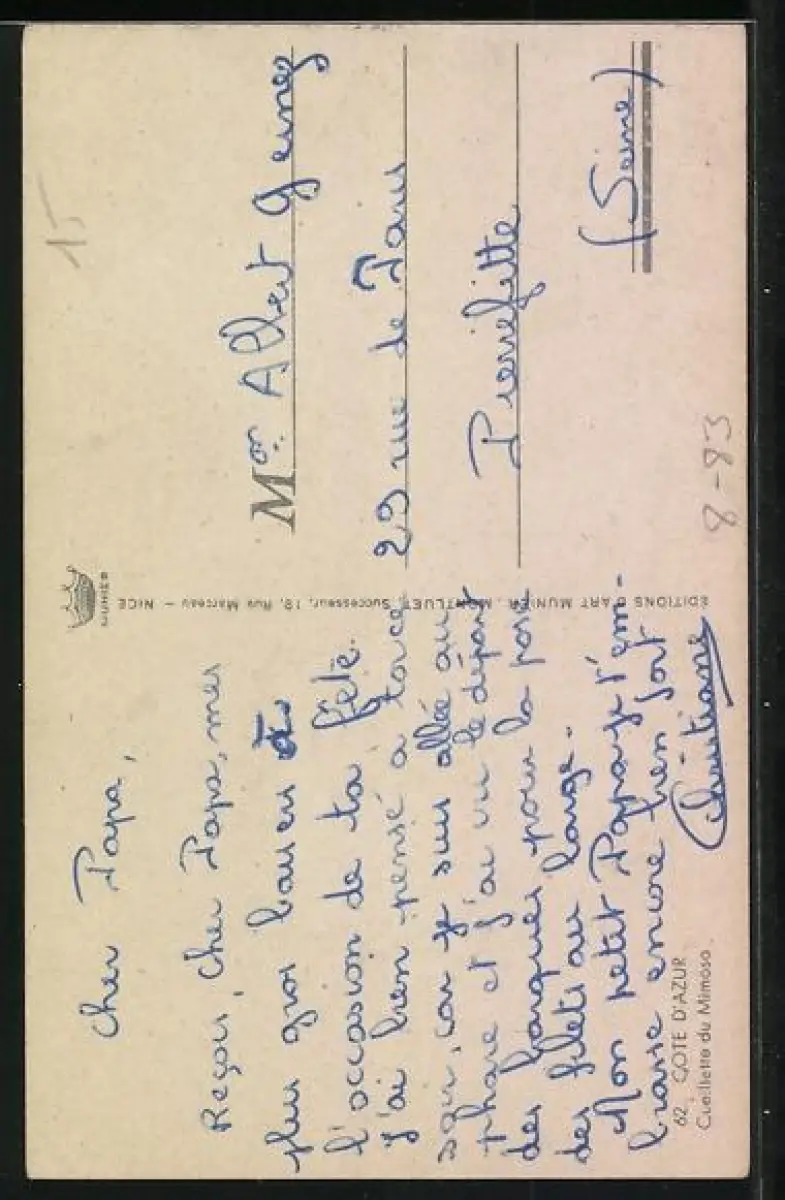 Cher Papa,
Reçois, cher Papa, mes
plus gros baisers à
l'occasion de ta fête.
J'ai bien pensé à toi ce
soir, car je suis allée au
phare et j'ai vu le départ
des barques pour la pose
des filets au large.
Mon petit Papa je t'em-
brasse encore bien fort
Christiane
62. COTE D'AZUR
Cueillette du Mimosa
EDITIONS D'ART MUNIER, MONTLUET, Successeur, 12, Rue Marceau - NICE
MUNIER
15
Mon. Albert
29 rue de Paris
Pierrefitte
(Seine)
8-93